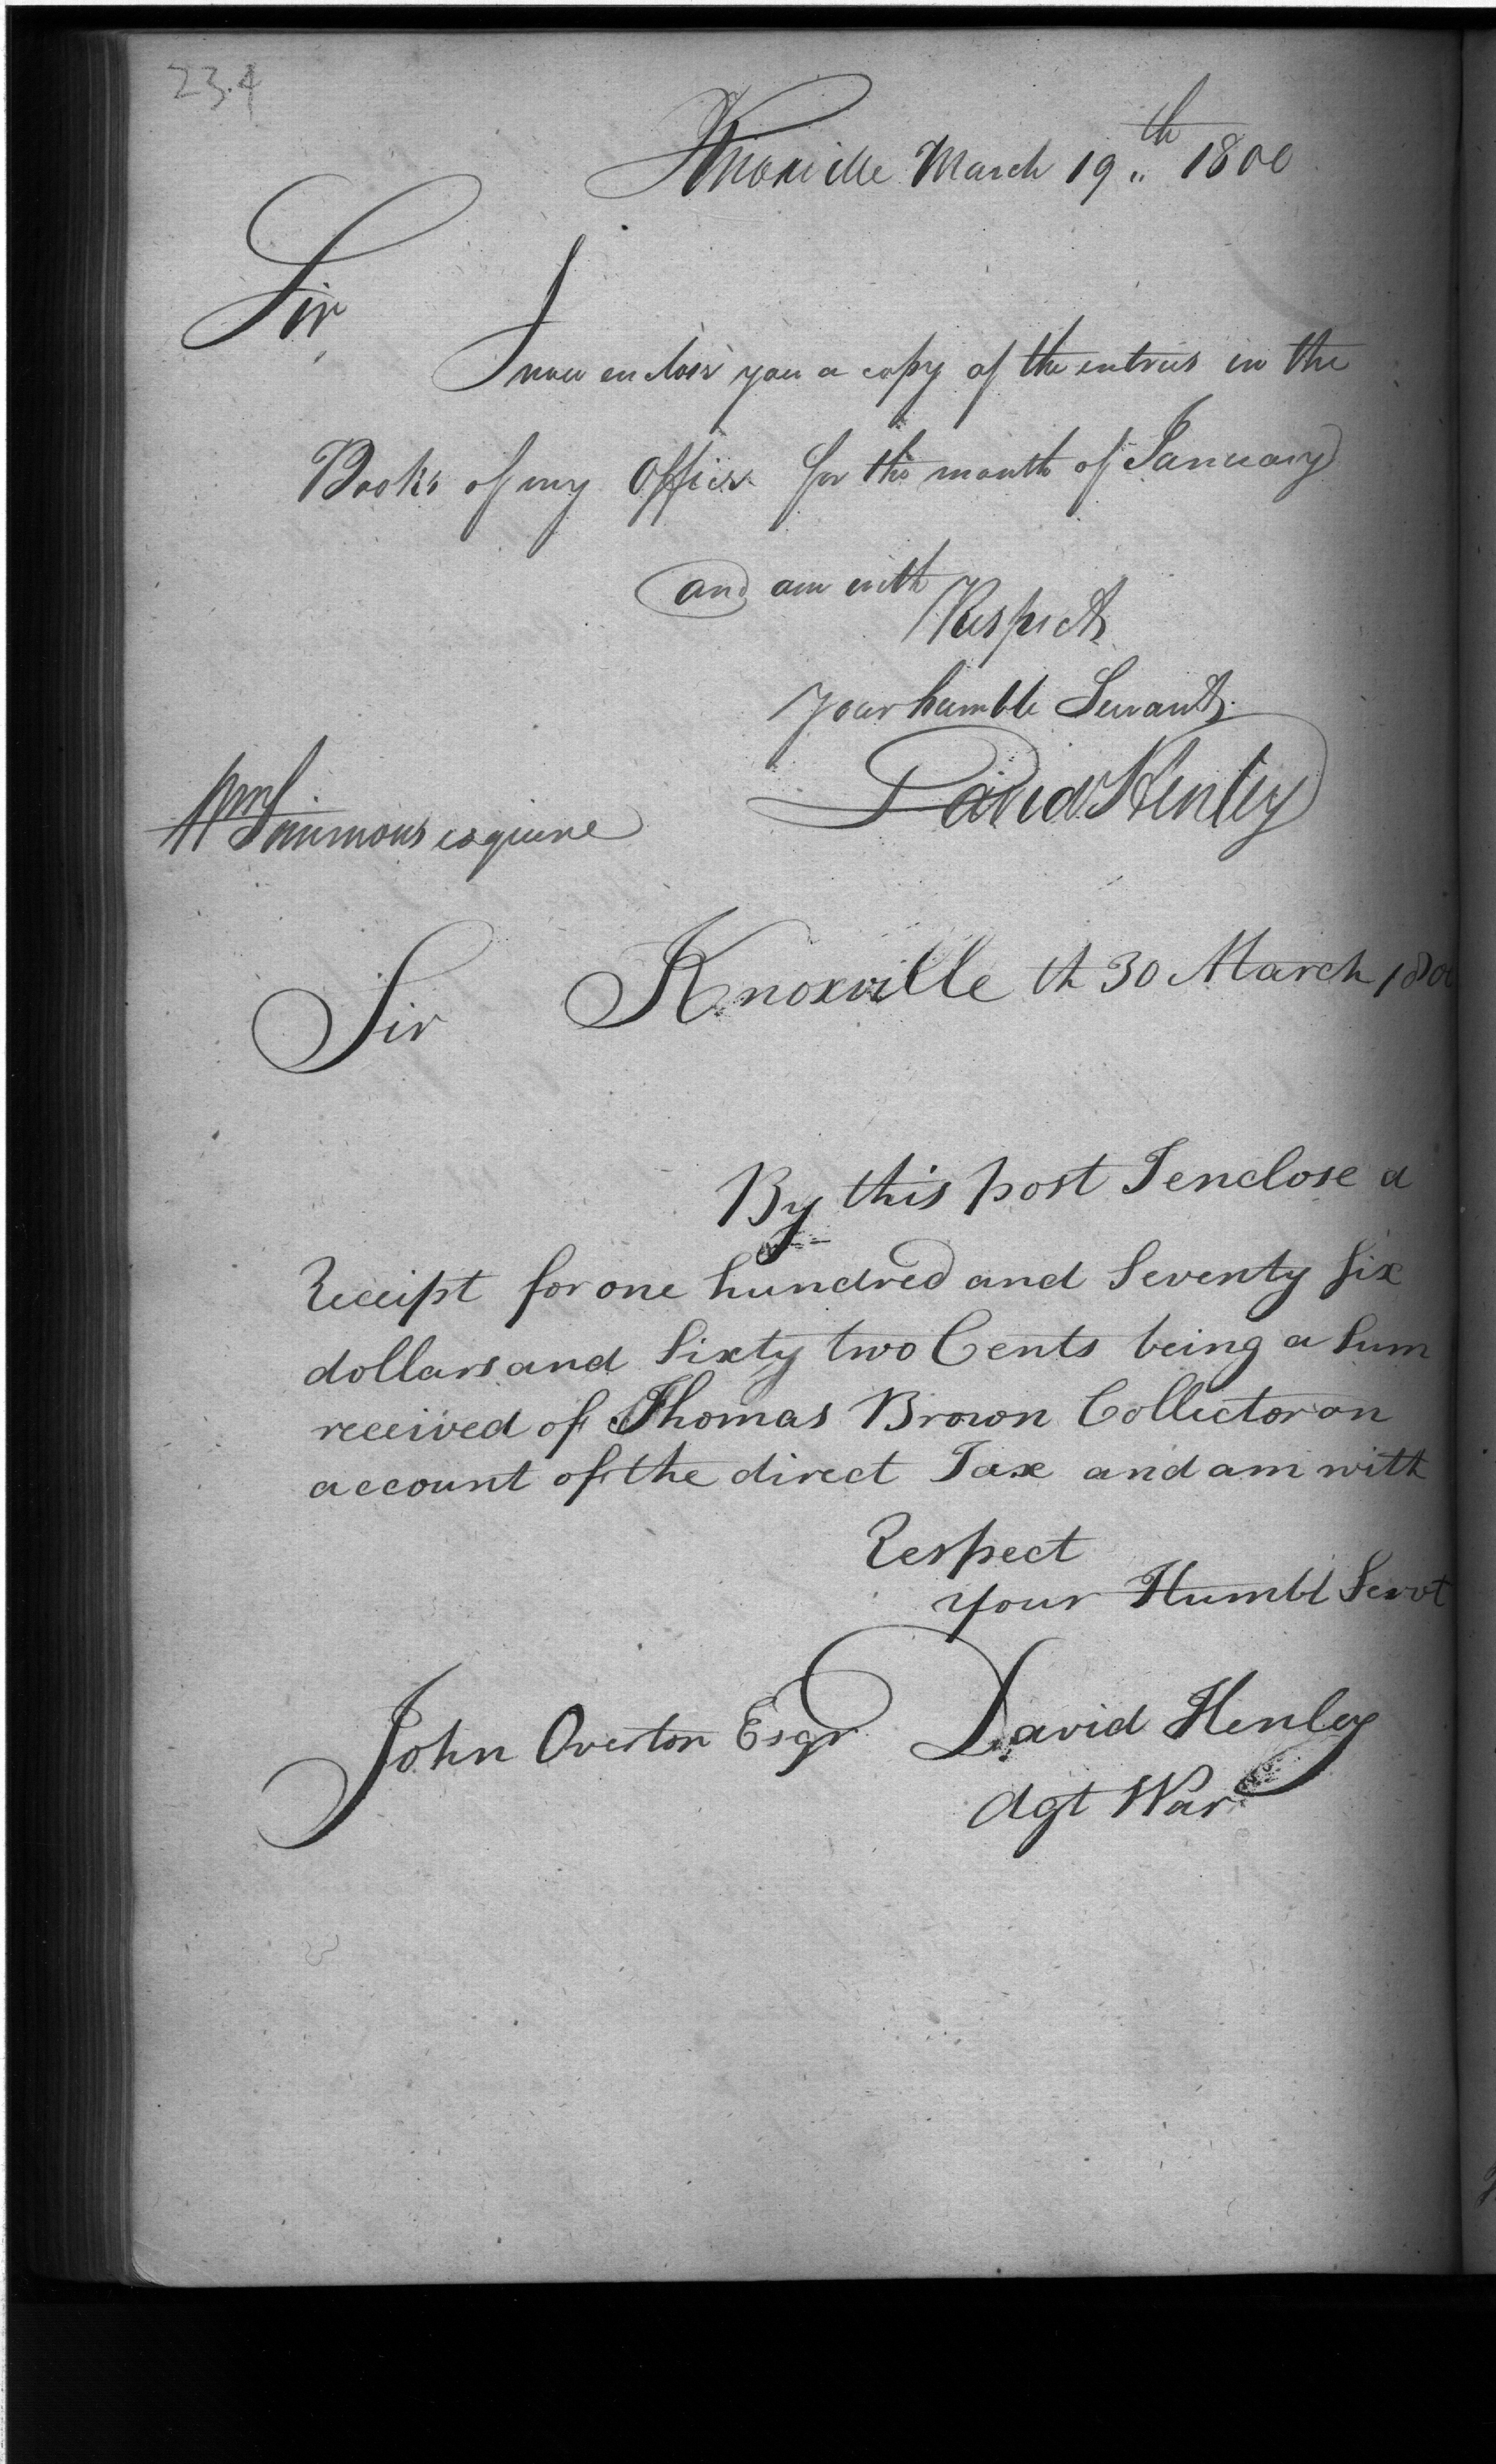 234
Knoxville March 19th 1800
Sir
I now enclose you a copy of the entries in the
Books of my Office for the month of January
and am with
Respect
your humble Servant
David Henley
Wm Simmons esquire
Sir Knoxville th 30 March 1800
By this post I enclose a
Receipt for one hundred and Seventy Six
dollars and Sixty two Cents being a Sum
received of Thomas Brown Collector on
account of the direct Tax and am with
Respect
your Humbl Servt
John Overton Esqr David Henley
Agt War